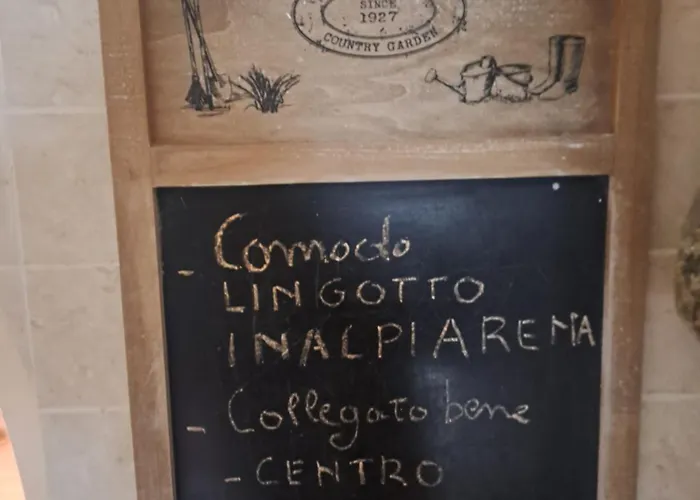 SINCE
1927
COUNTRY GARDEN
- Comodo
LINGOTTO
INALPIARENA
- Collegato bene
- CENTRO